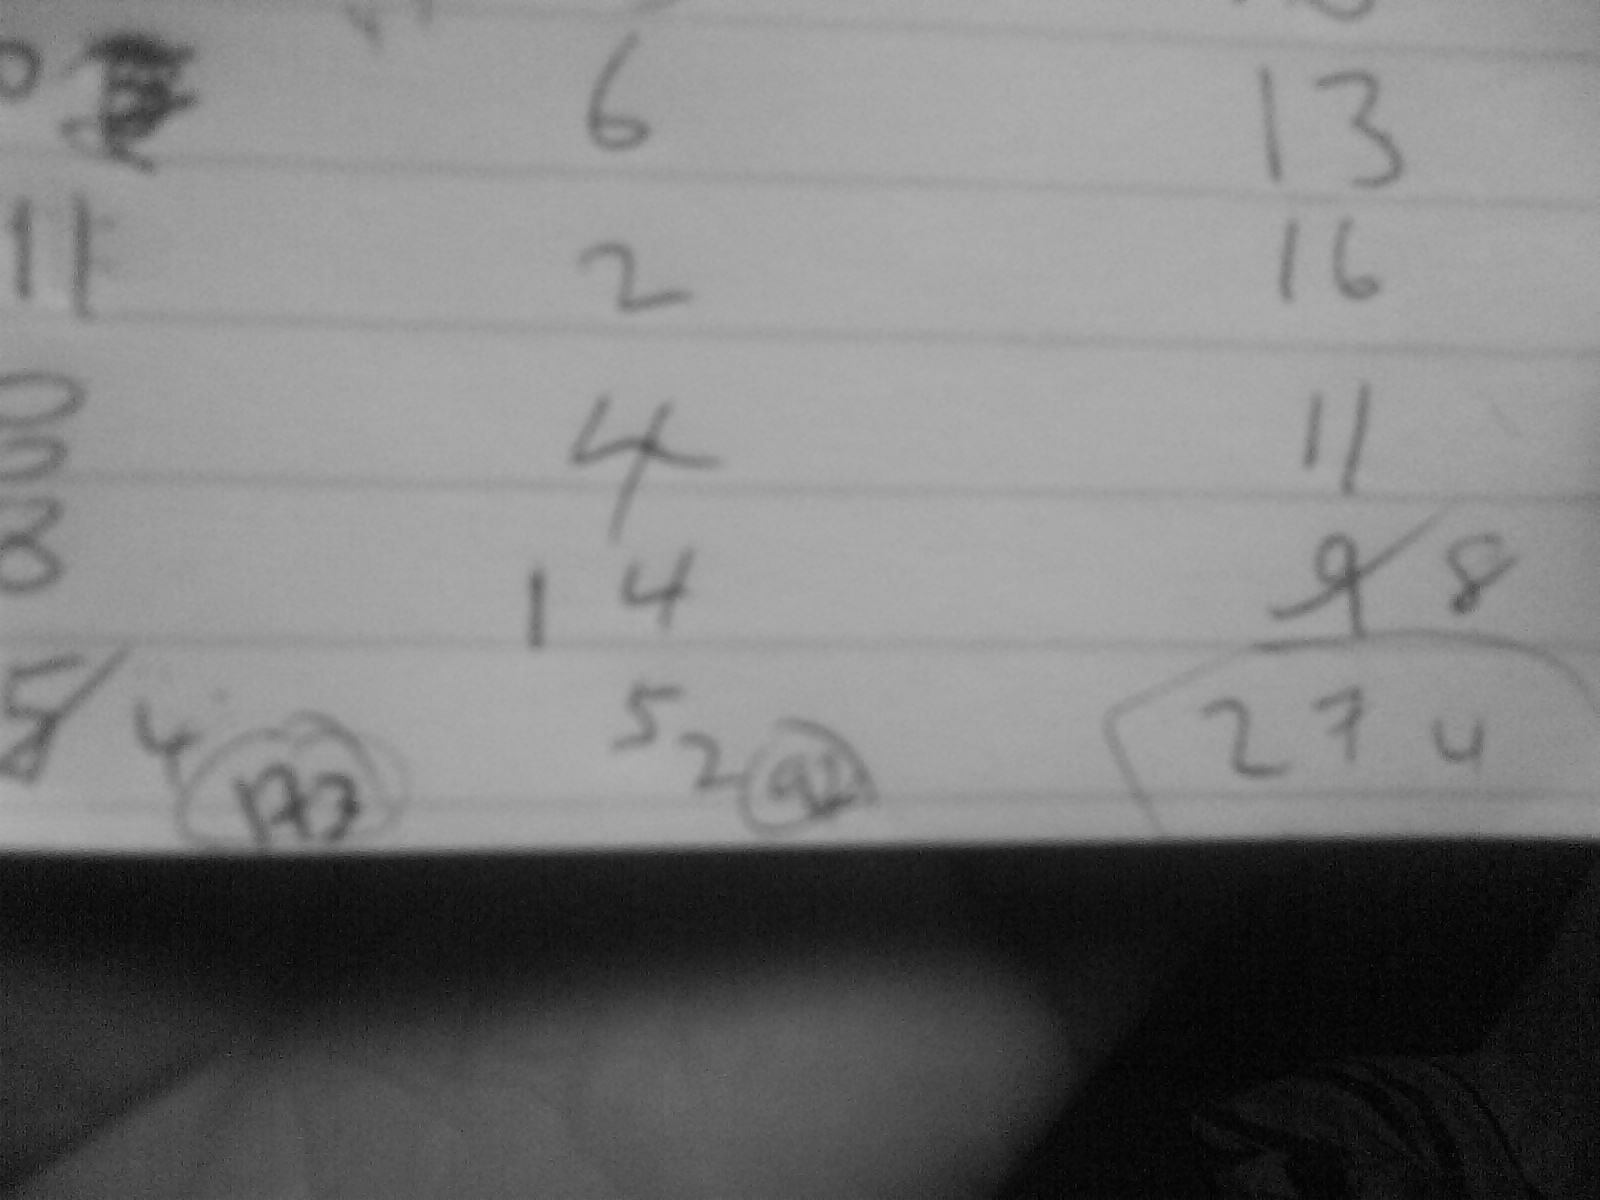 6 13
11 2 16
4 11
8 14 9 8
5 4 177 5 2 92 274